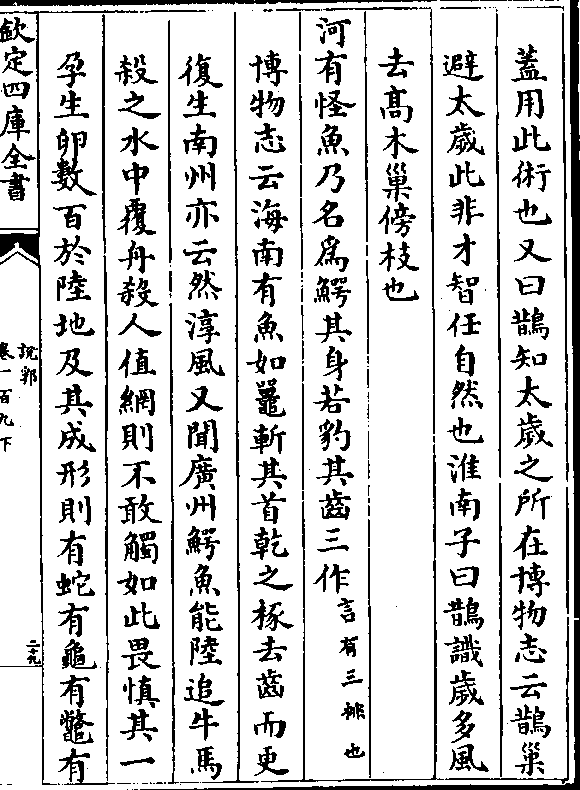 蓋用此術也又曰鵲知太歲之所在博物志云鵲巢
避太歲此非才智任自然也淮南子曰鵲識歲多風
去髙木巢傍枝也
河有怪魚乃名爲鰐其身若豹其齒三作言有三排也
博物志云海南有魚如鼉斬其首乾之椓去齒而更
復生南州亦云然淳風又聞廣州鰐魚能陸追牛馬
殺之水中覆舟殺人值網則不敢觸如此畏慎其一
孕生卵數百於陸地及其成形則有蛇有龜有鼈有
欽定四庫全書
說郛
卷一百九下
二十九